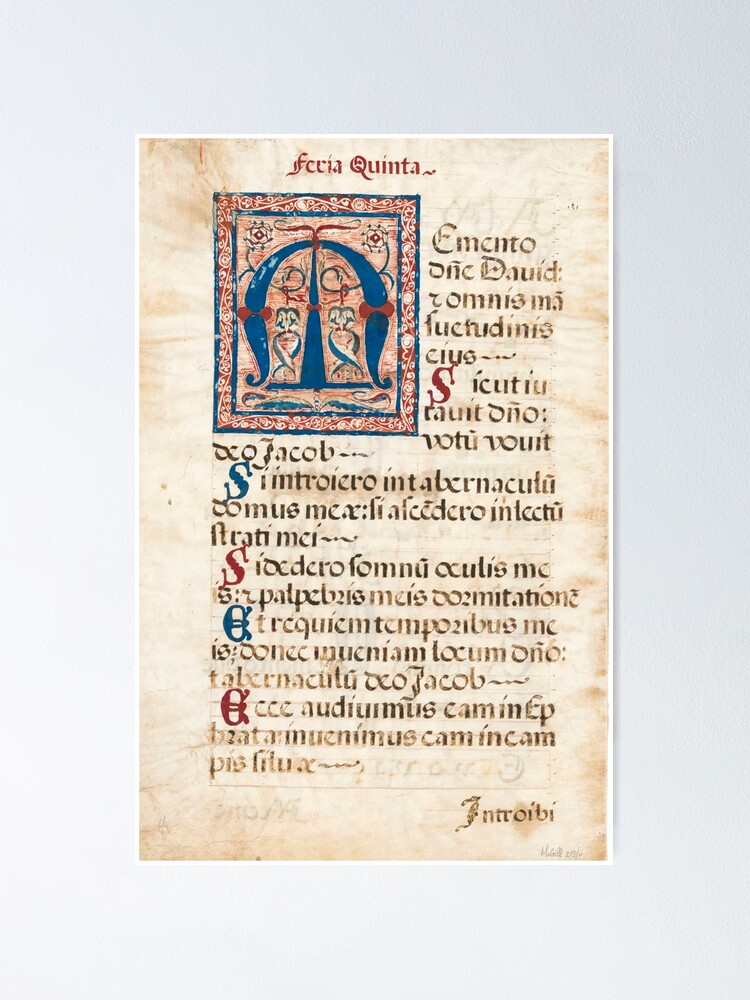 Feria Quinta~
MEmento
dn̄e David:
⁊ omnis mā
ſuetudinis
eius~
Sicut iu
ravit dn̄o:
votū vovit
deo Jacob~
Si introiero in tabernaculū
domus meæ: ſi aſcēdero in lectū
ſtrati mei~
Si dedero ſomnū oculis me
is: ⁊ palpebris meis dormitationē
Et requiem temporibus me
is; donec inveniam locum dn̄o:
tabernaculū deo Jacob~
Ecce audivimus eam in Ep
hrata: invenimus eam in cam
pis ſilvæ~
Introibi